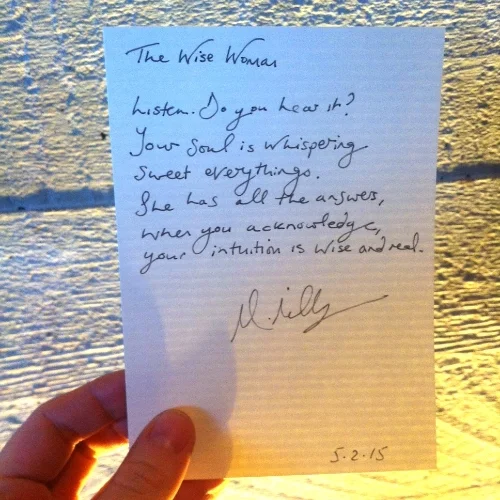 The Wise Woman
Listen. Do you hear it?
Your Soul is whispering
sweet everythings.
She has all the answers,
when you acknowledge,
your intuition is wise and real.
5.2.15